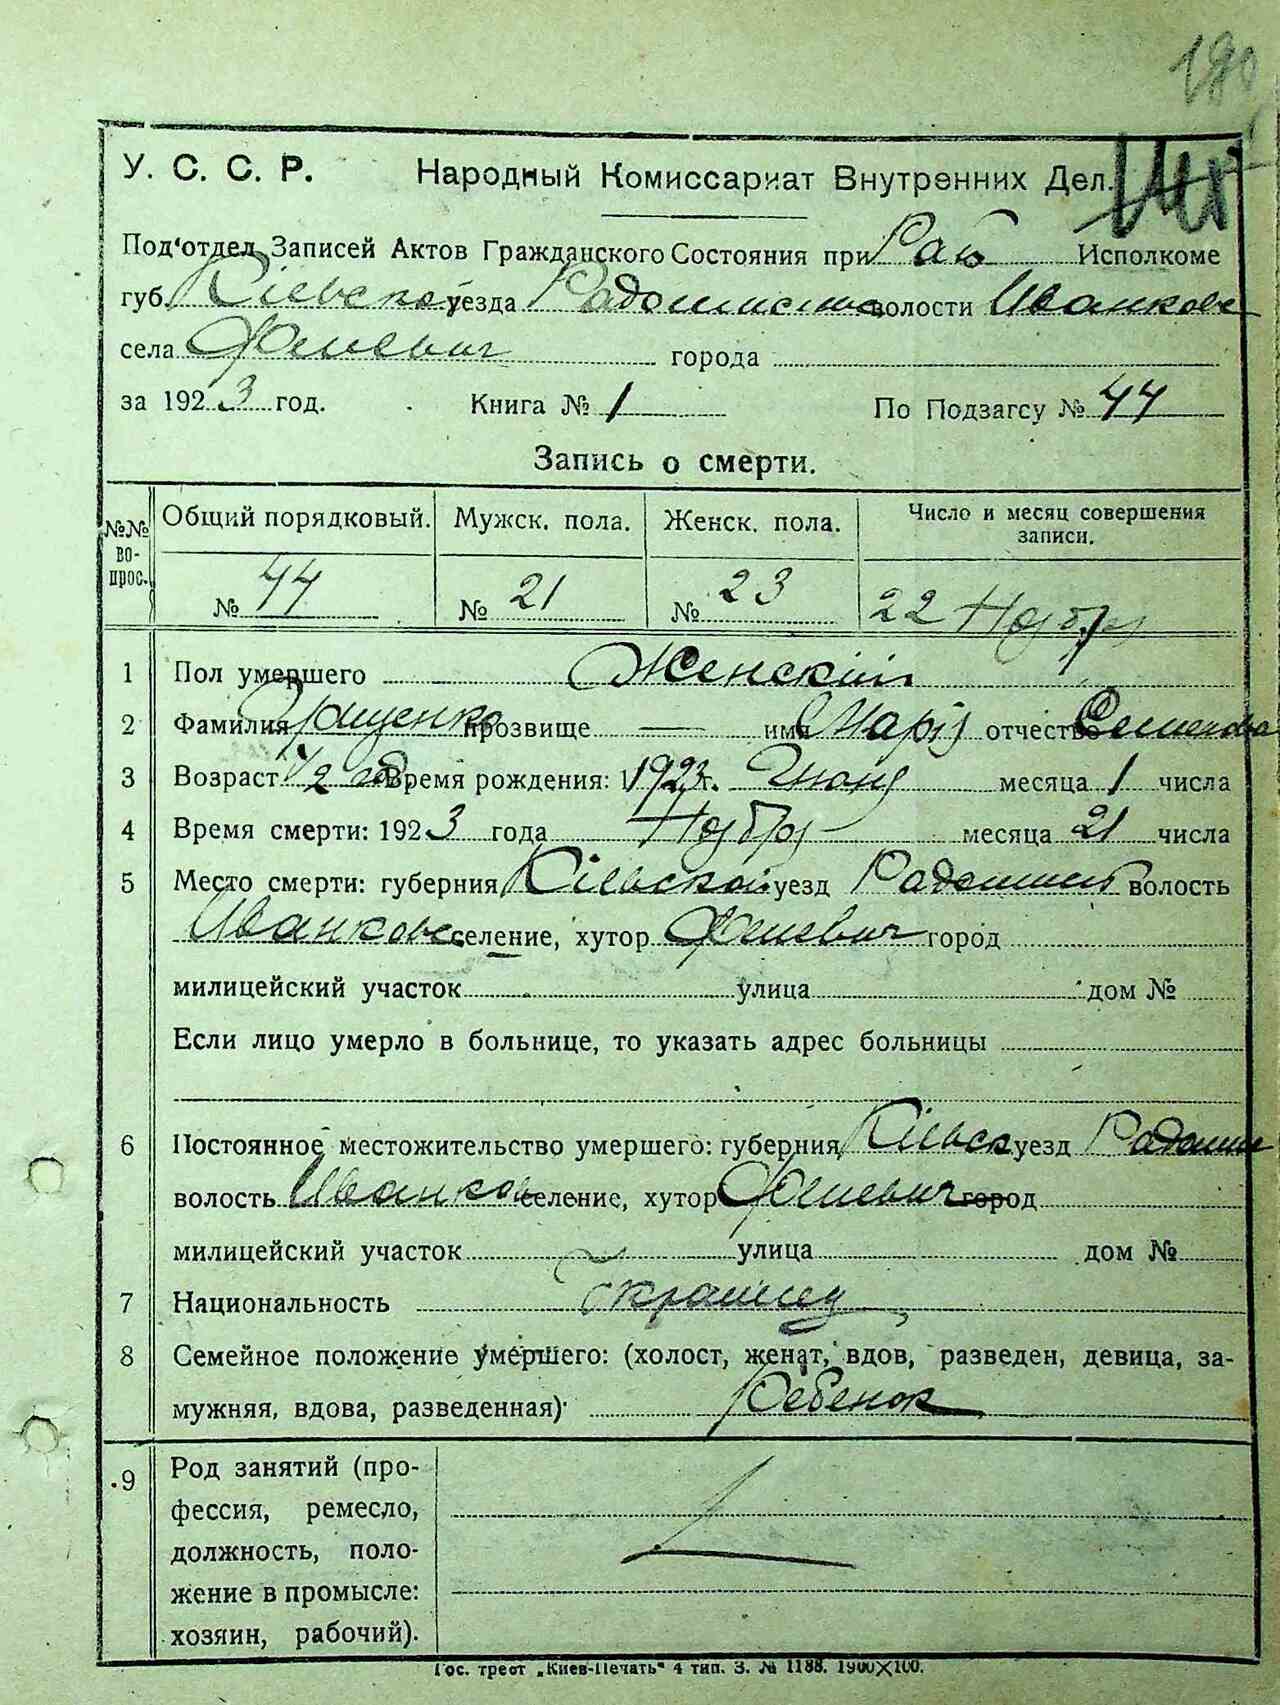 У. С. С. Р. Народный Комиссариат Внутренних Дел.
Под'отдел Записей Актов Гражданского Состояния при Рай Исполкоме
губ. Кіевской уезда волости Иванковс
села города
за 1923 год. Книга № 1 По Подзагсу № 44
Запись о смерти.
№№ вопрос. Общий порядковый. Мужск. пола. Женск. пола. Число и месяц совершения записи.
№ 44 № 21 № 23 22 Ноября
1 Пол умершего Женскій
2 Фамилия Грищенко прозвище — имя Марія отчество Семенова
3 Возраст 1/2 год. Время рождения: 1923 г. месяца 1 числа
4 Время смерти: 1923 года Ноября месяца 21 числа
5 Место смерти: губерния Кіевской уезд Радомысл волость
Иванковс селение, хутор город
милицейский участок улица дом №
Если лицо умерло в больнице, то указать адрес больницы
6 Постоянное местожительство умершего: губерния Кіевск уезд
волость Иванков селение, хутор город
милицейский участок улица дом №
7 Национальность
8 Семейное положение умершего: (холост, женат, вдов, разведен, девица, за-
мужняя, вдова, разведенная) Ребенок
9 Род занятий (про-
фессия, ремесло,
должность, поло-
жение в промысле:
хозяин, рабочий).
Гос. трест „Киев-Печать" 4 тип. З. № 1188. 1900×100.